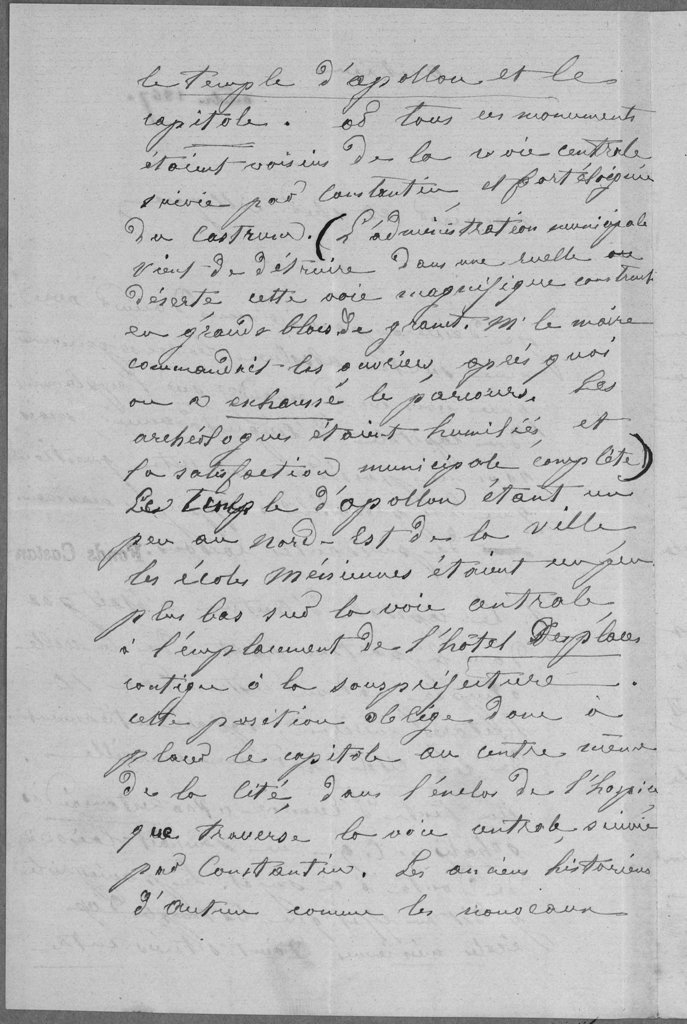 le temple d'apollon et le
capitole. où tous ces monuments
étaient voisins de la voie centrale
suivie par Constantin et fort éloignée
du Castrum. (L'administration municipale
vient de détruire dans une ruelle
déserte cette voie magnifique construite
en grands blocs de granit. Mr le maire
commandait les ouvriers, après quoi
on a exhaussé le parcours. Les
archéologues étaient humiliés, et
la satisfaction municipale complète)
Le Temple d'apollon étant un
peu au nord-Est de la Ville
les écoles méniennes étaient un peu
plus bas sur la voie centrale
à l'emplacement de l'hôtel Desplaces
contigu à la souspréfecture.
cette position oblige donc à
placer le capitole au centre même
de la Cité dans l'enclos de l'hospice
que traverse la voie centrale, suivie
par Constantin. Les anciens historiens
d'autun comme les nouveaux